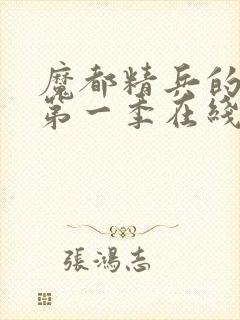 魔都精兵的
第一季在綫
張鴻志